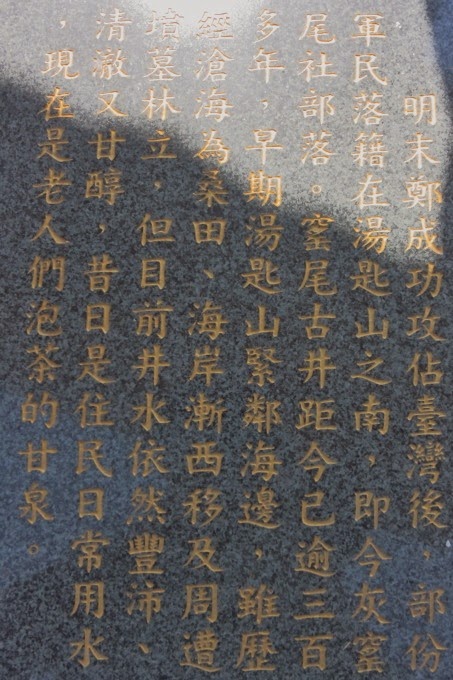 明末鄭成功攻佔臺灣後，部份
軍民落籍在湯匙山之南，即今灰窰
尾社部落。窰尾古井距今已逾三百
多年，早期湯匙山緊鄰海邊，雖歷
經滄海為桑田、海岸漸西移及周遭
墳墓林立，但目前井水依然豐沛、
清澈又甘醇，昔日是住民日常用水
，現在是老人們泡茶的甘泉。